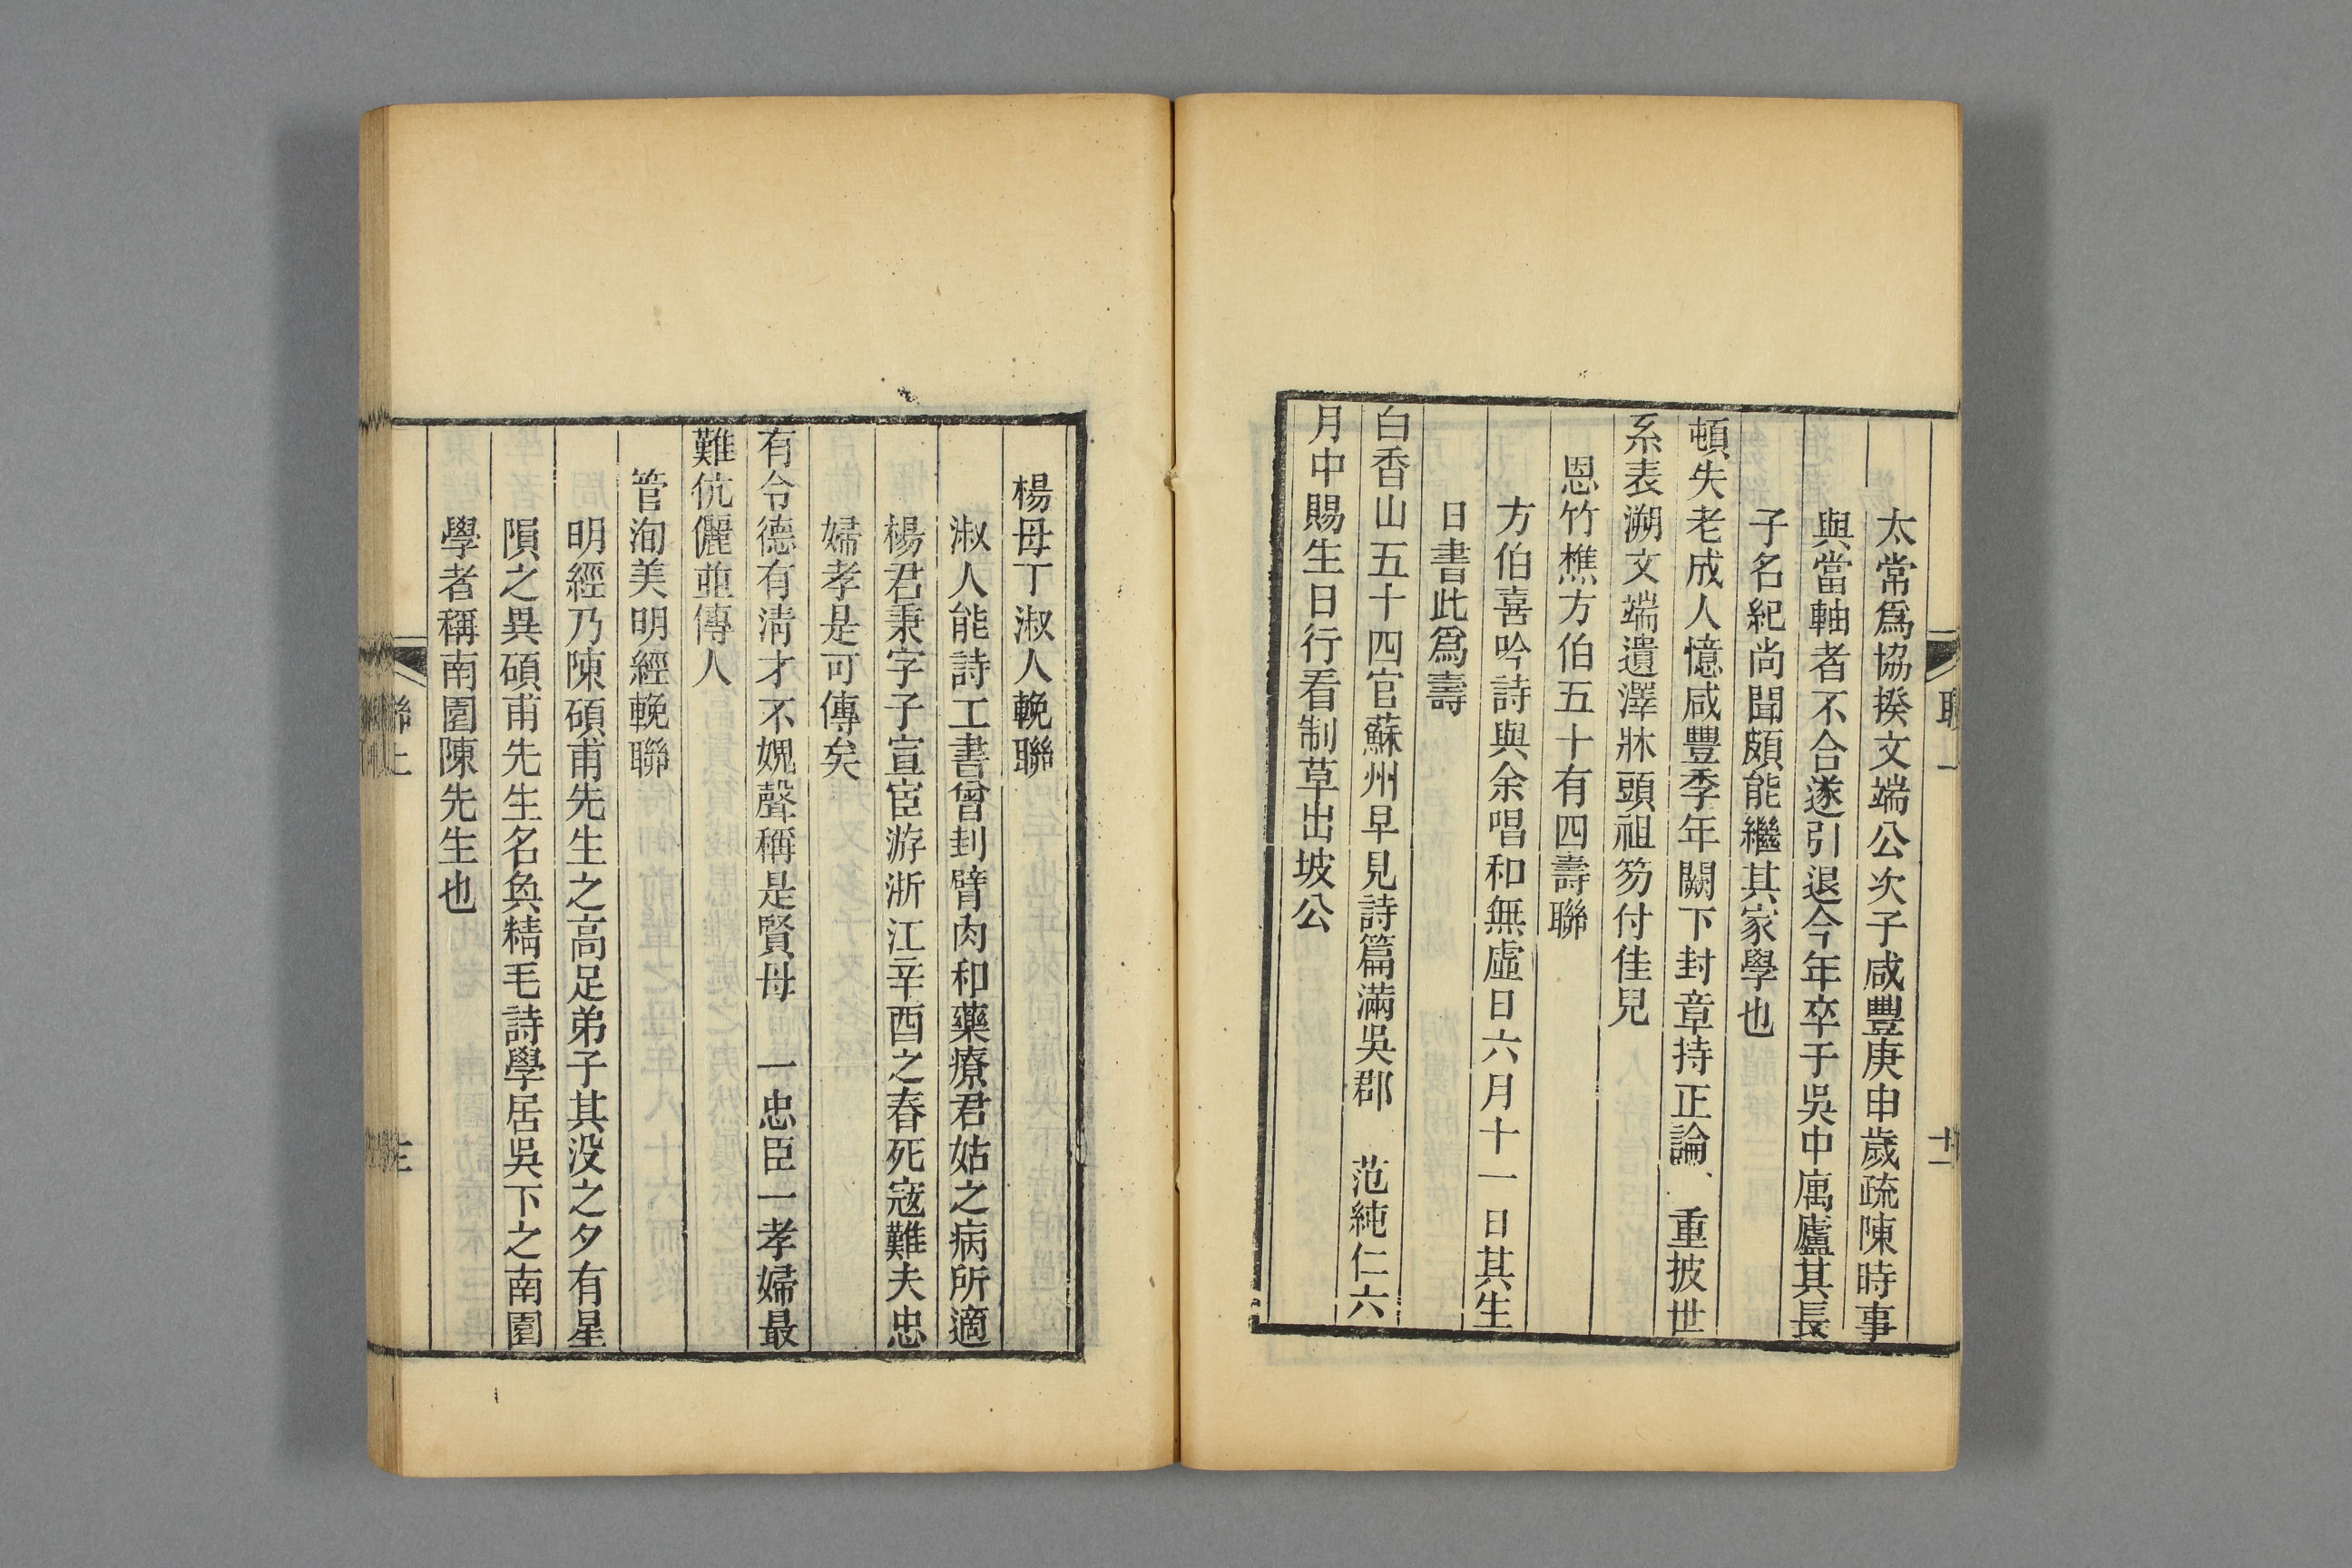 太常爲協揆文端公次子咸豐庚申歲疏陳時事
與當軸者不合遂引退今年卒于吳中寓廬其長
子名紀尚聞頗能繼其家學也
頓失老成人憶咸豐季年闕下封章持正論 重披世
系表溯文端遺澤牀頭祖笏付佳兒
恩竹樵方伯五十有四壽聯
方伯喜吟詩與余唱和無虛日六月十一日其生
日書此爲壽
白香山五十四官蘇州早見詩篇滿吳郡 范純仁六
月中賜生日行看制草出坡公
楊母丁淑人輓聯
淑人能詩工書曾刲臂肉和藥療君姑之病所適
楊君秉字子宣宦游浙江辛酉之春死寇難夫忠
婦孝是可傳矣
有令德有清才不媿聲稱是賢母 一忠臣一孝婦最
難伉儷並傳人
管洵美明經輓聯
明經乃陳碩甫先生之高足弟子其没之夕有星
隕之異碩甫先生名奐精毛詩學居吳下之南園
學者稱南園陳先生也
聯上